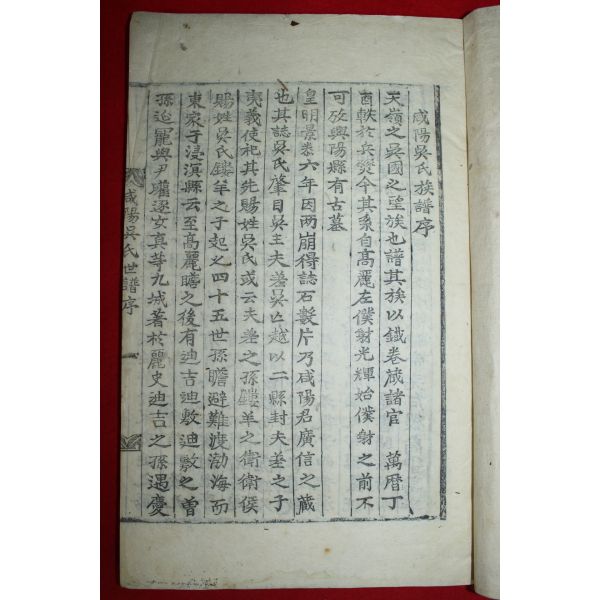 咸陽吳氏族譜序
天嶺之吳國之望族也譜其族以鐵卷藏諸官 萬曆丁
酉軼於兵燹今其系自高麗左僕射光輝始僕射之前不
可攷興陽縣有古墓
皇明景泰六年因雨崩得誌石數片乃咸陽君廣信之藏
也其誌吳氏肇自吳主夫差吳亡越以二縣封夫差之子
夷義使祀其先賜姓吳氏或云夫差之孫鏤羊之衛衛侯
賜姓吳氏鏤羊之子起之四十五世孫瞻避難渡渤海而
東家于浸溟縣云至高麗瞻之後有迪吉迪敷迪敷之曾
孫延寵與尹瓘逐女真等九城著於麗史迪吉之孫遇慶
咸陽吳氏世譜序 一